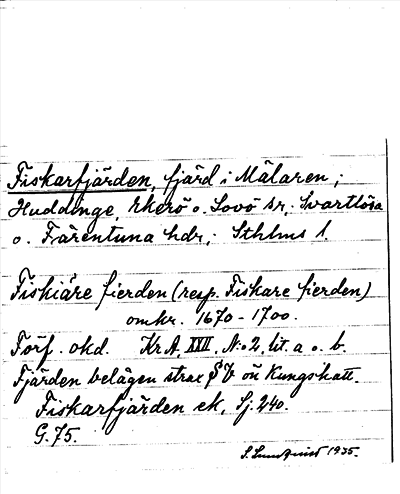 Fiskarfjärden, fjärd i Mälaren;
Huddinge, Ekerö o. Lovö sr; Svartlösa
o. Färentuna hdr; Sthlms l.
Fiskiäre fierden (resp. Fiskare fierden)
omkr. 1670-1700.
Förf. okd. Kr A, XXII, N:o 2, lit. a o. b.
Fjärden belägen strax SV om Kungshatt.
Fiskarfjärden ek, Sj. 240.
G. 75.
S. Lundquist 1935.